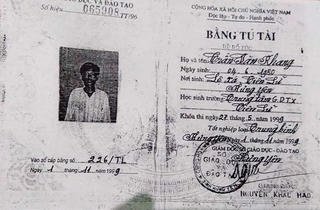 DỤC VÀ ĐÀO TẠO
Số hiệu
065908
TT/96
Vào sổ cấp bằng số 226/TL
Ngày 1 tháng 11 năm 1999
CỘNG HOÀ XÃ HỘI CHỦ NGHĨA VIỆT NAM
Độc lập - Tự do - Hạnh phúc
BẰNG TÚ TÀI
Họ và tên Trần Văn Khang
Ngày sinh 04.6.1980
Hưng Yên
Học sinh trường Trung tâm G.D.T.X
Khóa thi ngày 27 tháng 5 năm 1999
Tốt nghiệp loại Trung bình
Hưng Yên ngày 1 tháng 11 năm 1999
GIÁM ĐỐC SỞ GIÁO DỤC - ĐÀO TẠO
Hưng Yên
SỞ
GIÁO DỤC
VÀ
ĐÀO TẠO
NGUYỄN KHẮC HÀO